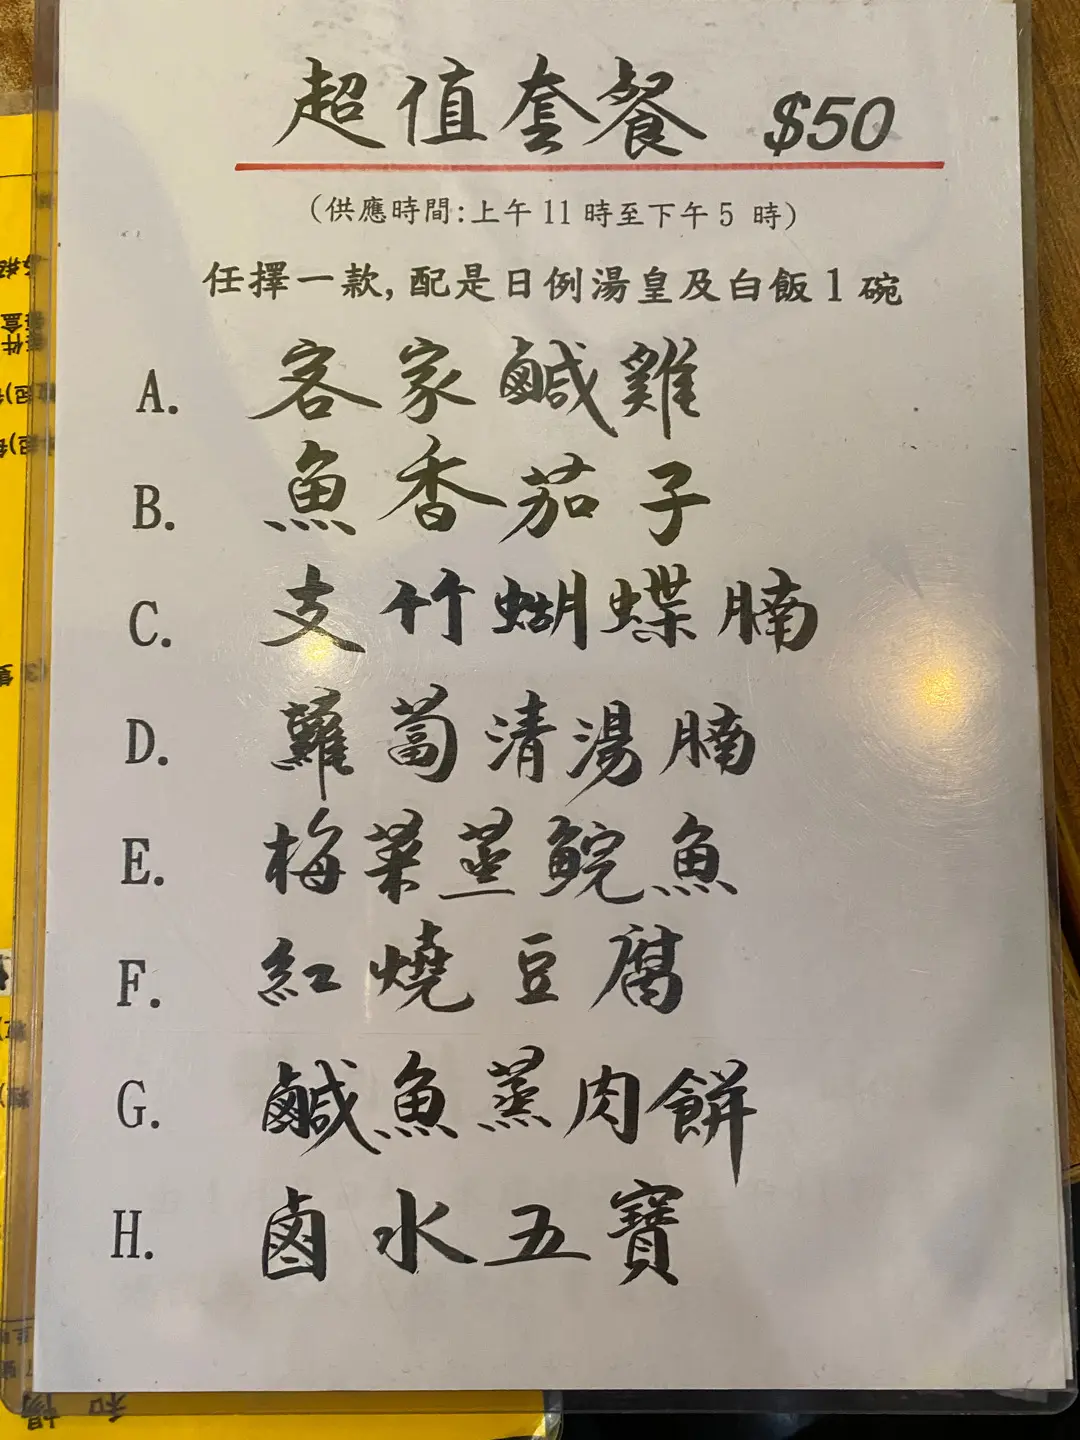 超值套餐 $50
(供應時間:上午11時至下午5 時)
任擇一款,配是日例湯皇及白飯1碗
A. 客家鹹雞
B. 魚香茄子
C. 支竹蝴蝶腩
D. 蘿蔔清湯腩
E. 梅菜蒸鯇魚
F. 紅燒豆腐
G. 鹹魚蒸肉餅
H. 鹵水五寶